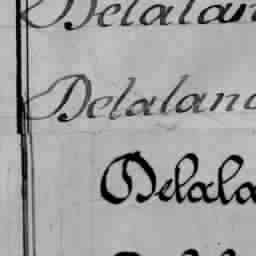 Delalan
Delaland
Delala